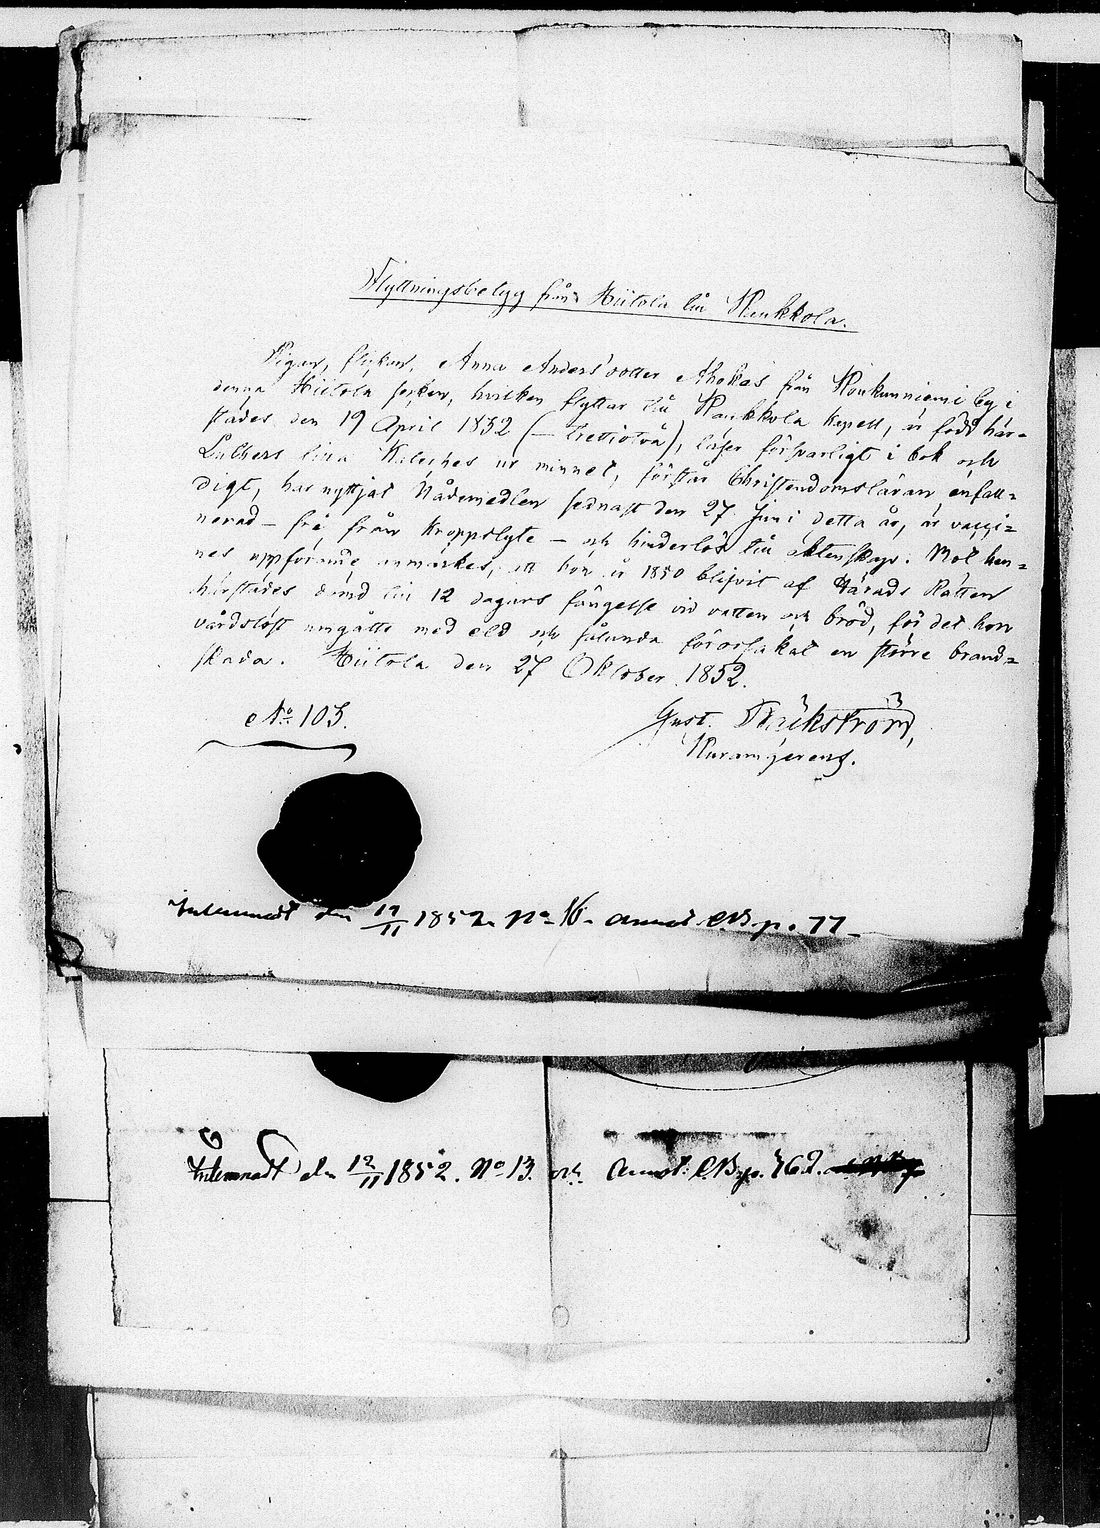 Flyttningsbetyg från Hiitola till Kaukkola.
Pigan, flickan, Anna Anders dotter Ahokas från Koukunniemi by i
denna Hiitola socken, hvilken flyttar till Kaukkola kapell, är född här-
städes den 19 April 1832 (- trettiotvå), läser försvarligt i bok och
Luthers lilla Kateches ur minnet, förstår Christendomsläran enfall=
digt, har nyttjat Nådemedlen sednast den 27 Juni detta år, är vacci-
nerad - fri från kroppslyte - och hinderlös till äktenskap. Mot hen=
nes uppförande anmärkes, att hon år 1850 blifvit af Härads Rätten
härstädes dömd till 12 dagars fängelse vid vatten och bröd, för det hon
vårdslöst umgåtts med eld och sålunda förorsakat en större brand=
skada. Hiitola den 27 Oktober 1852.
No 103.
Gust.
Inlemnadt den 19/11 1852. No 16. annot. C.B. p. 77
Inlemnadt den 12/11 1852. No 13. och annot. C.B. p. 762.